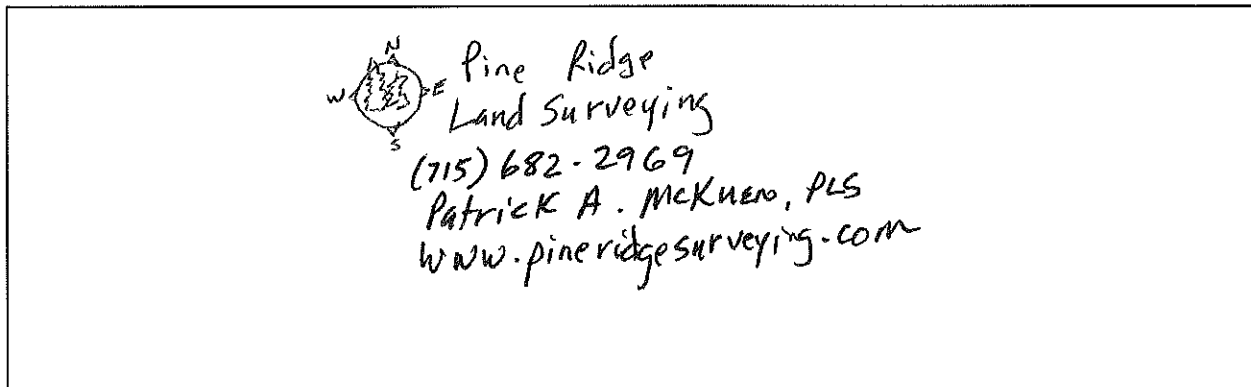 N
W E
S
Pine Ridge
Land Surveying
(715) 682-2969
Patrick A. McKuen, PLS
www.pineridgesurveying.com